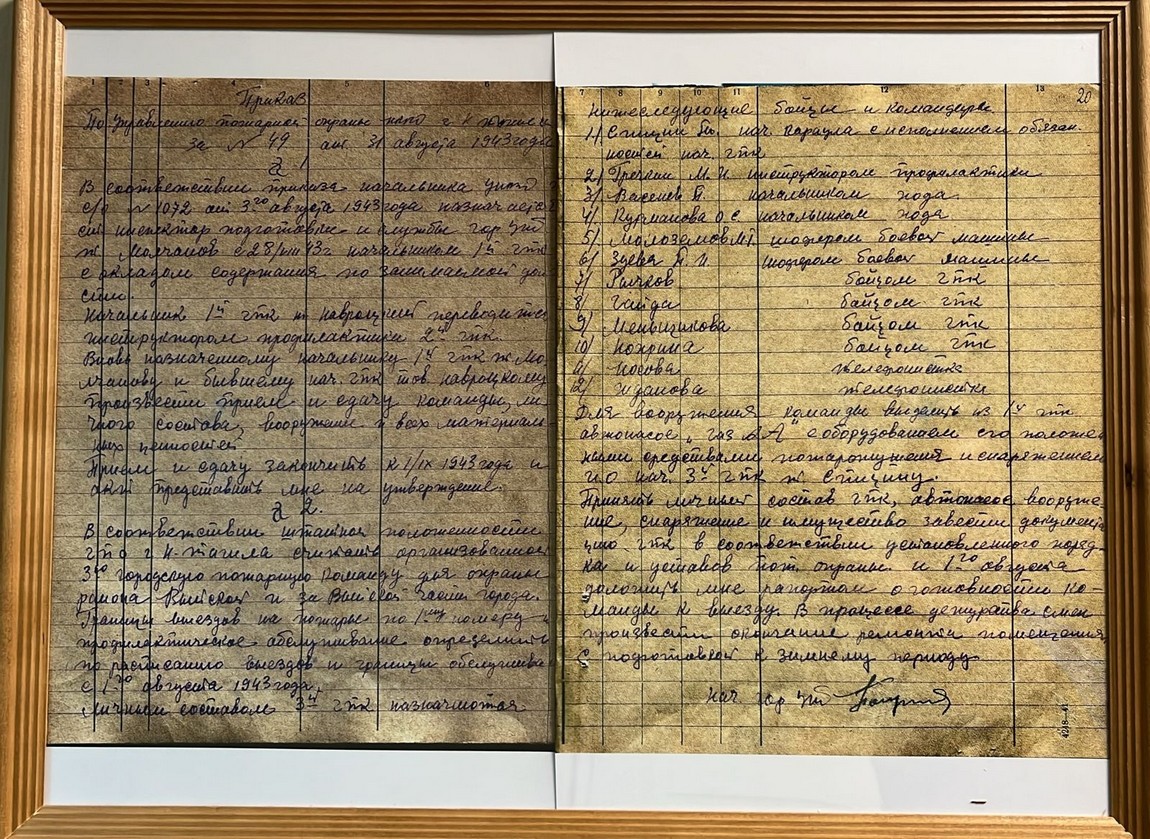 1 2 3 4 5 6
Приказ
По Управлению пожарной охраны г Н
за № 49 от 31 августа 1943 года
§ 1
В соответствии приказа начальника
с/о № 1072 от 3го августа 1943 года назначается
инспектор подготовки и службы гор
т Молчанов с 28/VIII 43 г начальником 1й гпк
с окладом содержания по занимаемой дол
сти.
Начальник 1й гпк т Навроцкий переводится
инструктором профилактики 2й гпк.
Вновь назначенному начальнику 1й гпк т. Мо
лчанову и бывшему нач. гпк тов. Навроцкому
произвести прием и сдачу команды, ли
чного состава, вооружения и всех материаль
ных ценностей
Прием и сдачу закончить к 1/IX 1943 года и
акт представить мне на утверждение.
§ 2.
В соответствии штатной положенности
г Н-Тагила считать организованной
3ю городскую пожарную команду для охраны
района Выйской и за Выйской части города.
Границы выездов на пожары по 1му номеру и
профилактическое обслуживание определить
по расписанию выездов и границы обслужива
с 1го августа 1943 года,
Личным составом 3й гпк назначаются
7 8 9 10 11 12 13
20
нижеследующие бойцы и командиры
1/ Спицин нач. караула с исполнением обязан
ностей нач. гпк
2/ Гречкин М. И. инструктором профилактики
3/ Васенев П. начальником хода
4/ Курманова О. С. начальником хода
5/ Малоземов шофером боевой машины
6/ Зуева П. И шофером боевой машины
7/ Рычков бойцом гпк
8/ Гайда бойцом гпк
9/ Меньшикова бойцом гпк
10/ бойцом гпк
11/ Носова телефонистка
12/ Жданова телефонистка
Для вооружения команды выдать из 1й гпк
автонасос „Газ АА" с оборудованием его положен
ными средствами пожаротушения и снаряжением
нач. 3й гпк т. Спицину.
Принять личный состав гпк, автонасос вооруже
ние, снаряжение и имущество завести документ
цию гпк в соответствии установленного поряд-
ка и уставов пож. охраны и 1го августа
доложить мне рапортом о готовности ко-
манды к выезду. В процессе дежурства смен
произвести окончание ремонта помещения
с подготовкой к зимнему периоду
нач. гор
4218-41